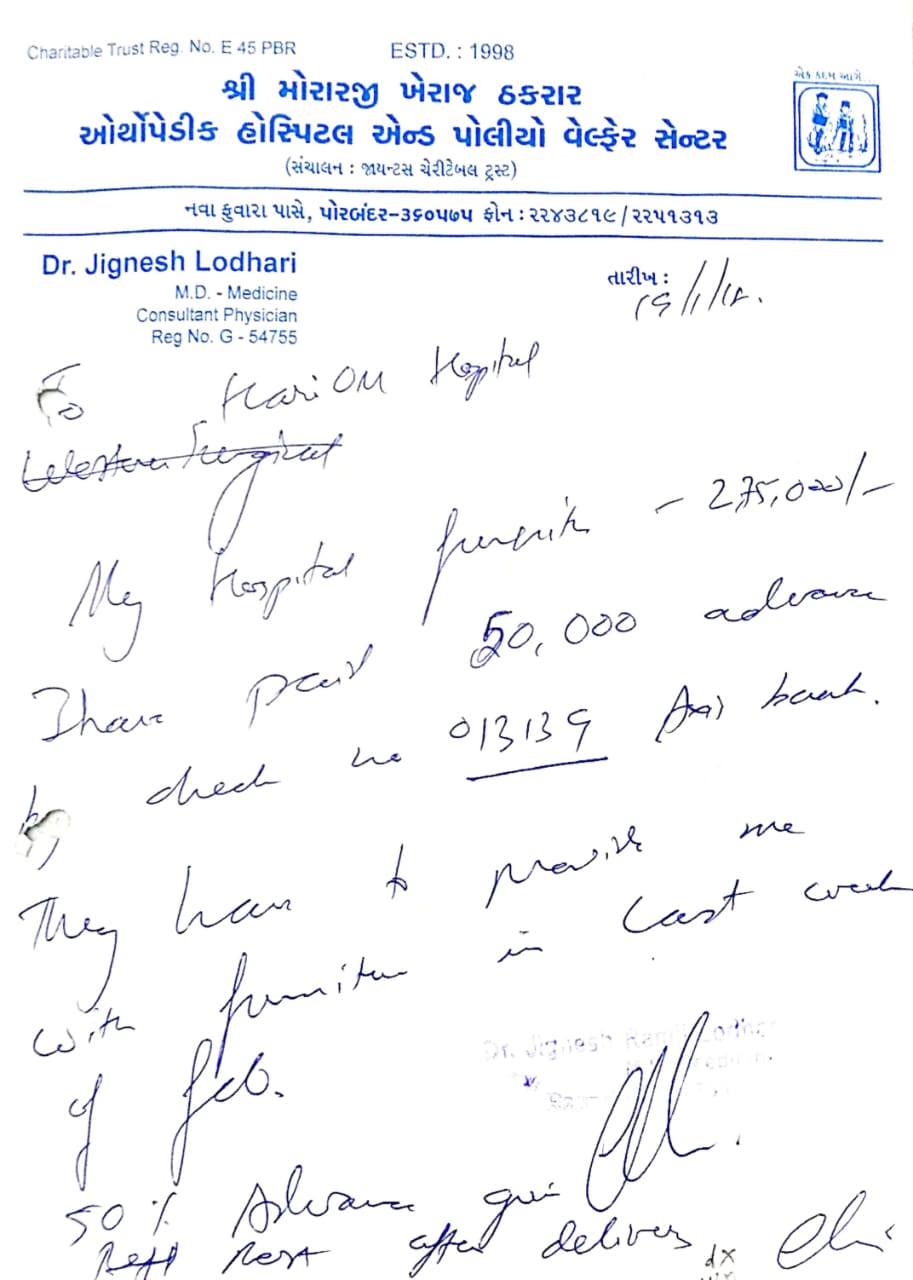 Charitable Trust Reg. No. E 45 PBR ESTD. : 1998
એક કદમ આગે...
શ્રી મોરારજી ખેરાજ ઠકરાર
ઓર્થોપેડીક હોસ્પિટલ એન્ડ પોલીયો વેલ્ફેર સેન્ટર
(સંચાલન : જાયન્ટસ ચેરીટેબલ ટ્રસ્ટ)
નવા ફુવારા પાસે, પોરબંદર-૩૬૦૫૭૫ ફોન : ૨૨૪૩૮૧૯ / ૨૨૫૧૩૧૩
Dr. Jignesh Lodhari
M.D. - Medicine
Consultant Physician
Reg No. G - 54755
તારીખ :
To HariOM Hospital
My Hospital - 275,000/-
I have paid 50,000 advance
by check no 013139 Axi bank.
They have to provide me
with furniture in last week
of feb.
Dr. Jignesh Ramji Lodhari
50 % Advance
Rest after delivery